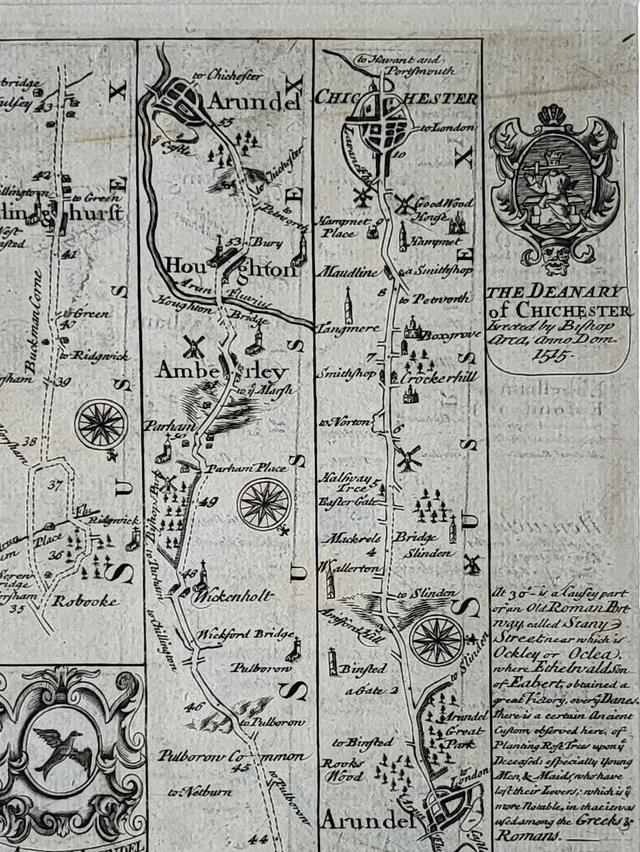 43
42
to Green
hurst
41
Buckman Corne
to Green
40
to Ridgwick
39
38
37
Flu
Ridgwick
Place
36
35
Robooke
SUSSEX
to Chichester
Arundel
55
ẏ Castle
54
to Chichester
to Petworth
53
Bury
Houghton
Arun Fluvius
Houghton
Bridge
Amberley
to ẏ Marsh
Parham
Parham Place
Bishop Park
49
to Parham
48
Wickenholt
to Chillington
Wickford Bridge
Pulborow
46
to Pulborow
Pulborow Common
45
to Netburn
to Pulborow
44
SUSSEX
to Havant and
Portsmouth
CHICHESTER
to London
Lavant
10
Hampnet
Place
9
GoodWood
House
Hampnet
Maudline
a Smithshop
8
to Petworth
Tangmere
Boxgrove
7
Smithshop
Crockerhill
to Norton
6
Halfway
Tree
5
Easter Gate
Muckrels
Bridge
4
Slinden
Wallerton
to Slinden
Avisford Hill
to Slinden
Binsted
a Gate 2
Arundel
Great
Park
to Binsted
Rooks
Wood
to London
Arundel
SUSSEX
THE DEANARY
of CHICHESTER
Erected by Bishop
Arca, Anno Dom.
1515.
At 30 is a Causey part
of an Old Roman Port
way called Stany
Street near which is
Ockley or Oclea,
where Ethelwald Son
of Egbert, obtained a
great Victory, over ẏ Danes.
there is a certain Ancient
Custom observed here, of
Planting Rose Trees upon ẏ
Deceased; especially Young
Men, & Maids, who have
lost their Lovers; which is ẏ
more Notable, in that it was
used among the Greeks &
Romans.